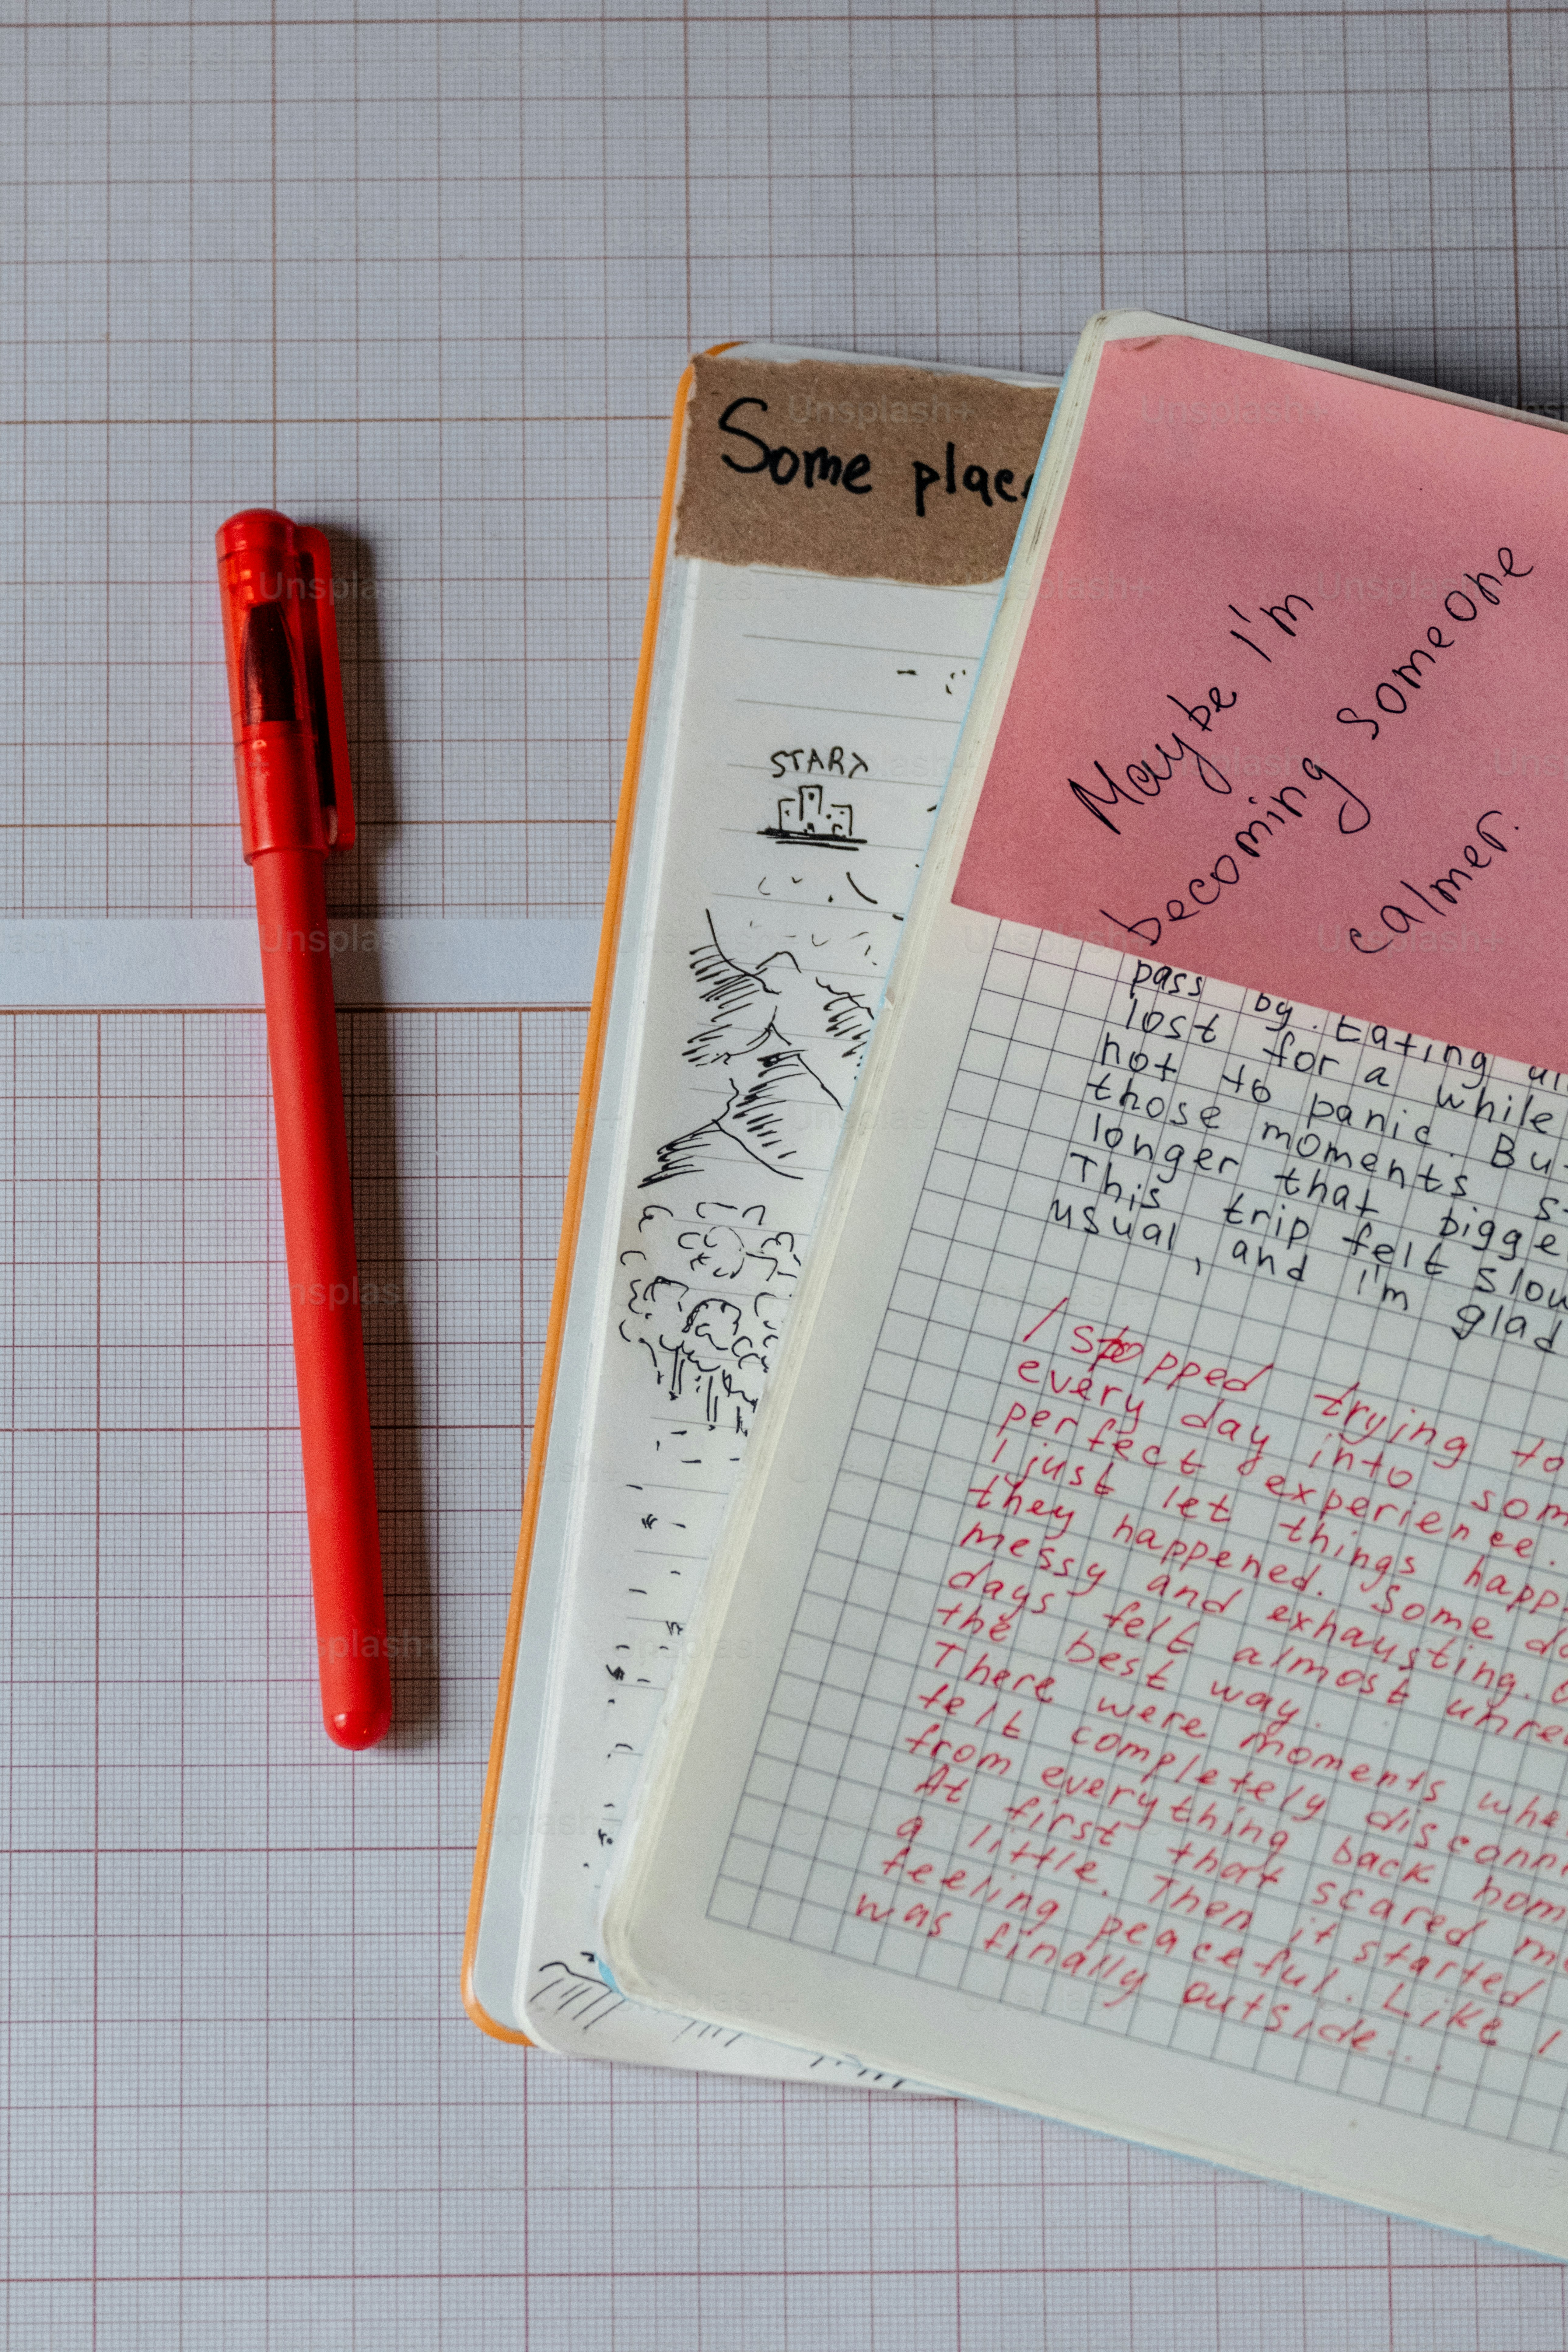 Some
START
Maybe I'm
becoming someone
calmer.
pass by. Eating
lost for a while
not to panic. But
those moments
longer that
This trip felt
usual, and I'm glad
I stopped trying to
every day into
perfect experience.
I just let things
they happened. Some
messy and exhausting.
days felt almost
the best way.
There were moments
felt completely
from everything back
At first that scared
a little. Then it started
feeling peaceful. Like I
was finally outside...